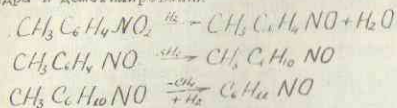 CH₃C₆H₄NO₂ H₂ — CH₃C₆H₄NO + H₂O
CH₃C₆H₄NO CH₃C₆H₁₀NO
CH₃C₆H₁₀NO -CH₃ + H₂ C₆H₁₁NO